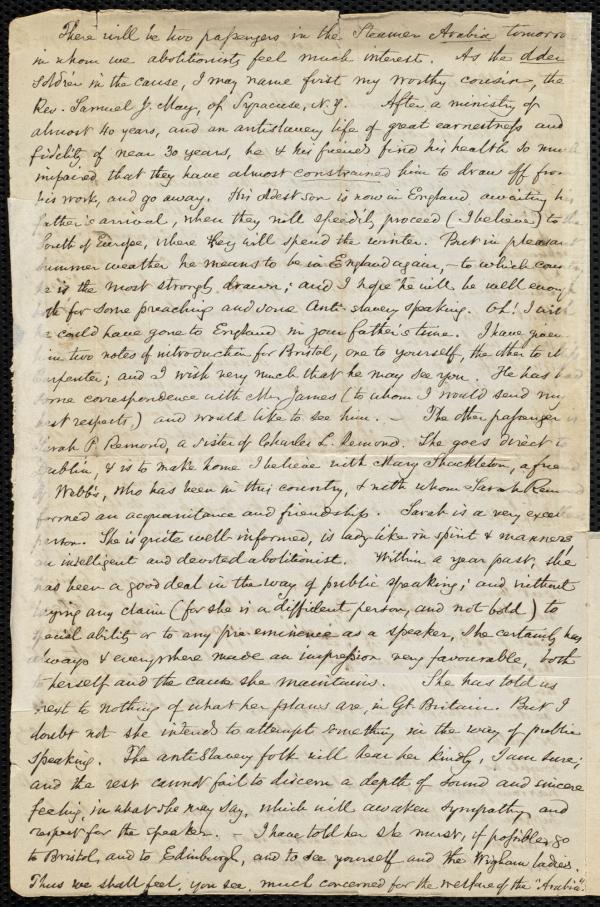 There will be two passengers in the Steamer Arabia tomorro
in whom we abolitionists feel much interest. As the older
soldier in the cause, I may name first my worthy cousin, the
Rev. Samuel J. May, of Syracuse, N.Y. After a ministry of
almost 40 years, and an antislavery life of great earnestness and
fidelity of near 30 years, he & his friends find his health so much
impaired, that they have almost constrained him to draw off from
his work, and go away. His oldest son is now in England, awaiting his
father's arrival, when they will speedily proceed (I believe) to
South of Europe, where they will spend the winter. But in pleasant
summer weather he means to be in England again, – to which coun
he is the most strongly drawn; and I hope he will be well enough
both for some preaching and some Anti-slavery speaking. Oh! I wish
he could have gone to England in your father's time. I have given
him two notes of introduction for Bristol, one to yourself, the other to
Carpenter; and I wish very much that he may see you. He has had
some correspondence with Mr. James (to whom I would send my
best respects) and would like to see him. – The other passenger is
Sarah P. Remond, a sister of Charles L. Remond. She goes direct to
Dublin, & is to make home I believe with Mary Shackleton, a frie
of Webb's, who has been in this country, & with whom Sarah Rem
formed an acquaintance and friendship. Sarah is a very excel
person. She is quite well-informed, is lady like in spirit & manners,
an intelligent and devoted abolitionist. Within a year past, she
has been a good deal in the way of public speaking; and without
laying any claim (for she is a diffident person, and not bold) to
special ability or to any pre-eminence as a speaker, she certainly has
always & everywhere made an impression very favourable, both
to herself and the cause she maintains. She has told us
next to nothing of what her plans are, in Gt. Britain. But I
doubt not she intends to attempt something in the way of public
speaking. The antislavery folk will hear her kindly, I am sure;
and the rest cannot fail to discern a depth of sound and sincere
feeling in what she may say, which will awaken sympathy and
respect for the speaker. – I have told her she must, if possible, go
to Bristol, and to Edinburgh, and to see yourself and the Wigham ladies.
Thus we shall feel, you see, much concerned for the welfare of the "Arabia".